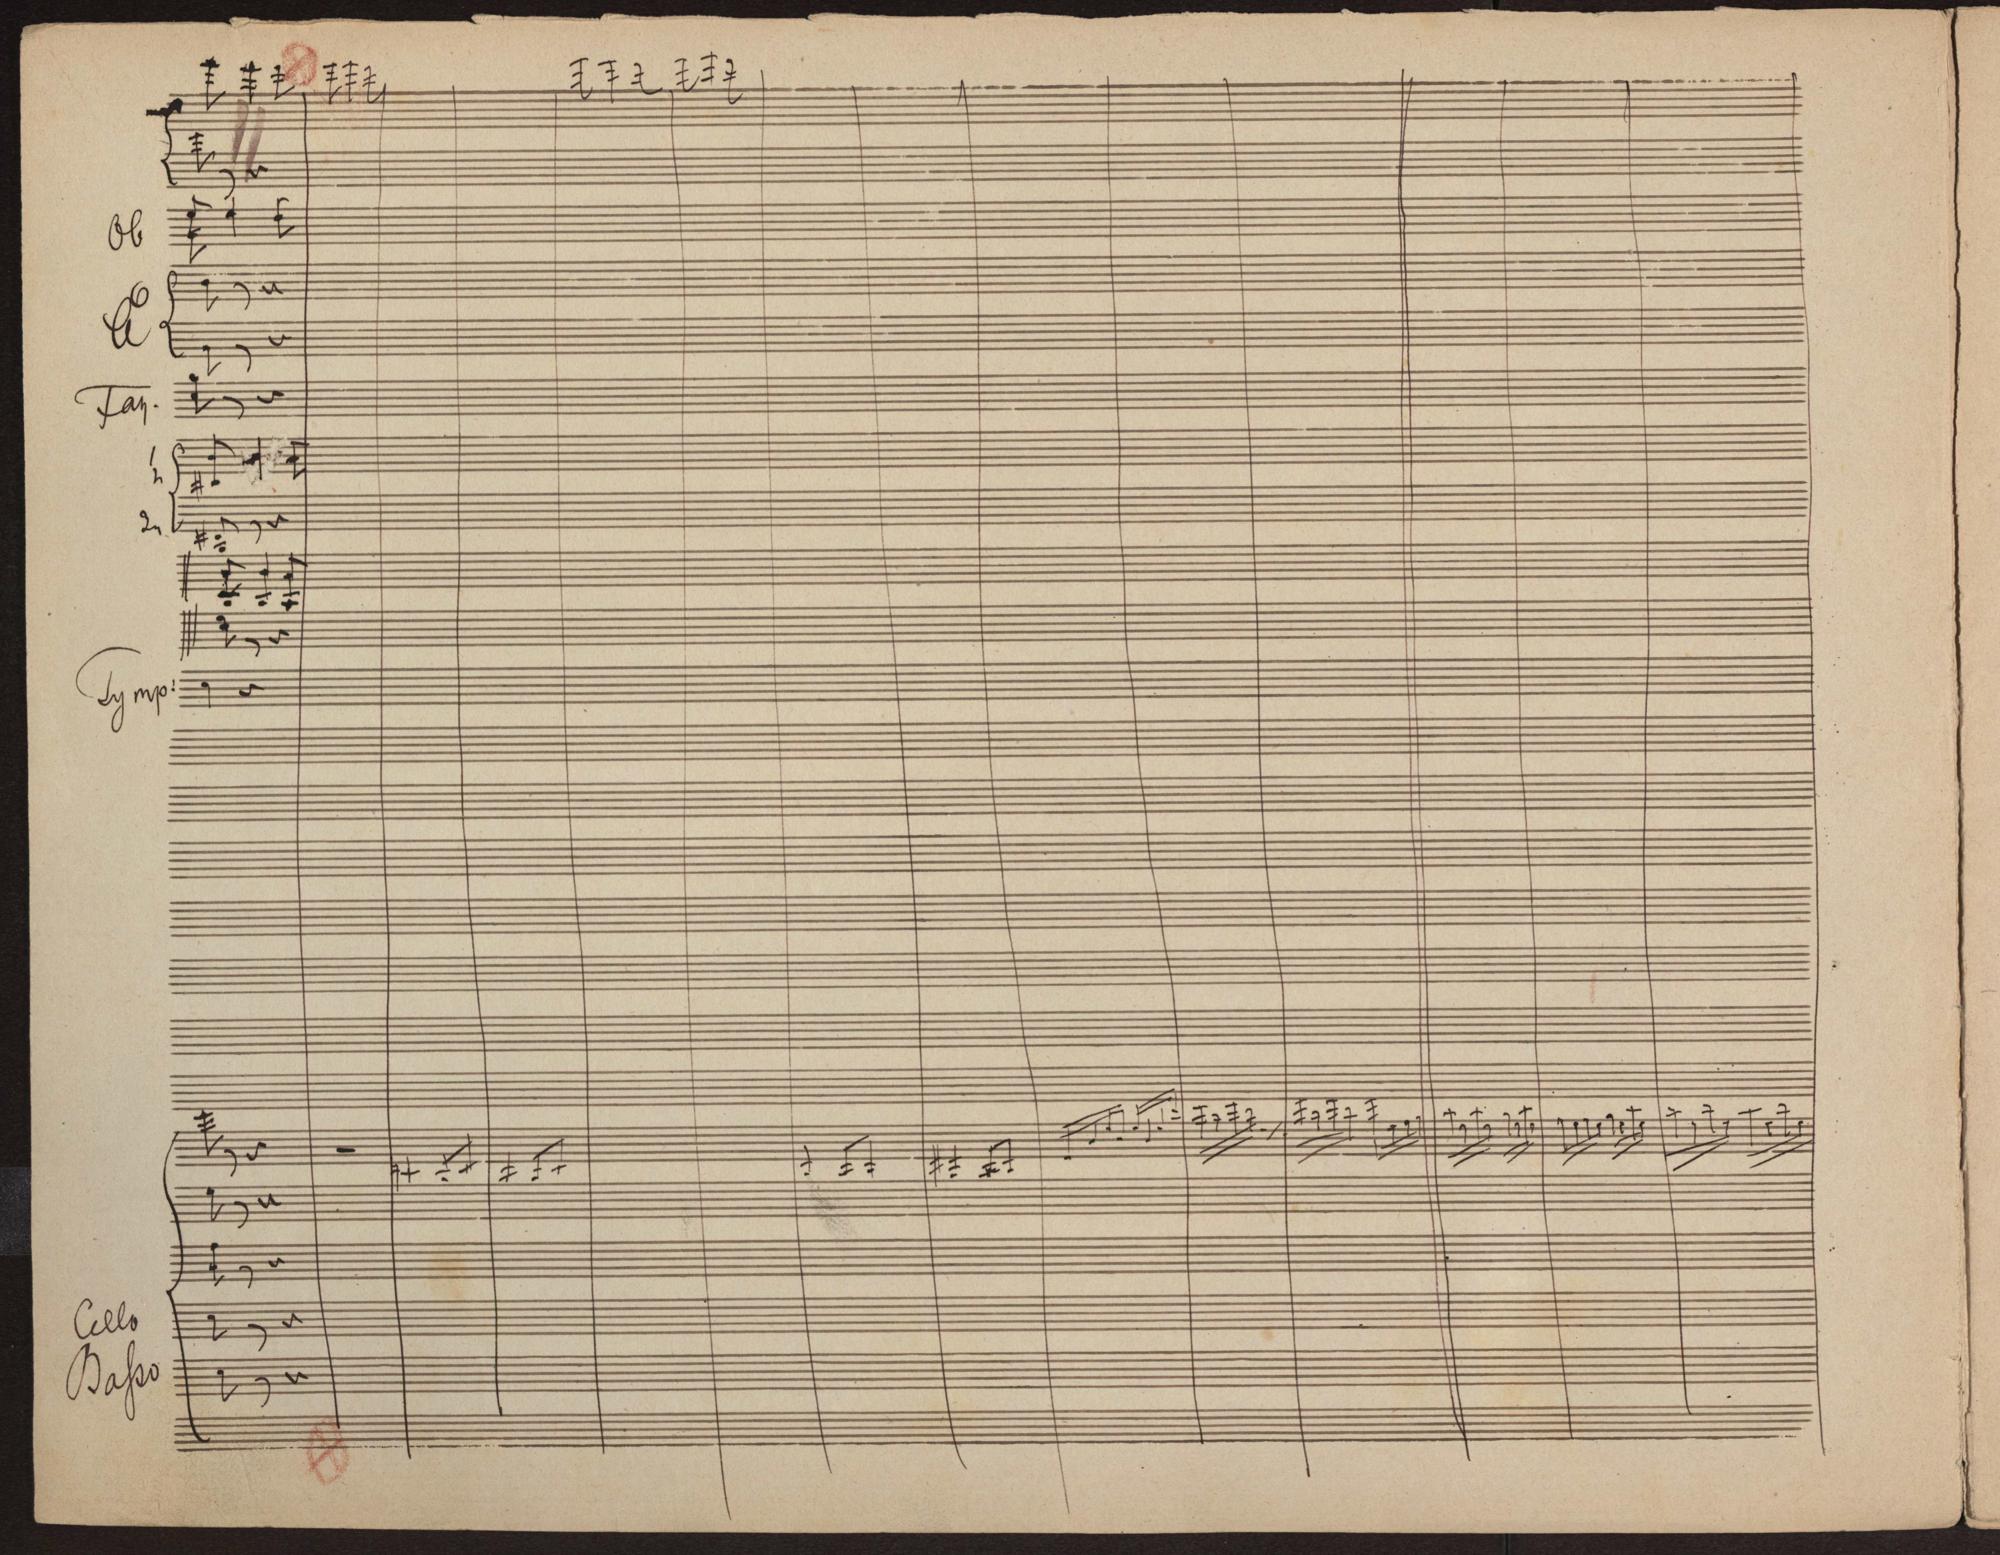 Ob
Cl
Fag.
1
2
Tymp:
Cello
Basso